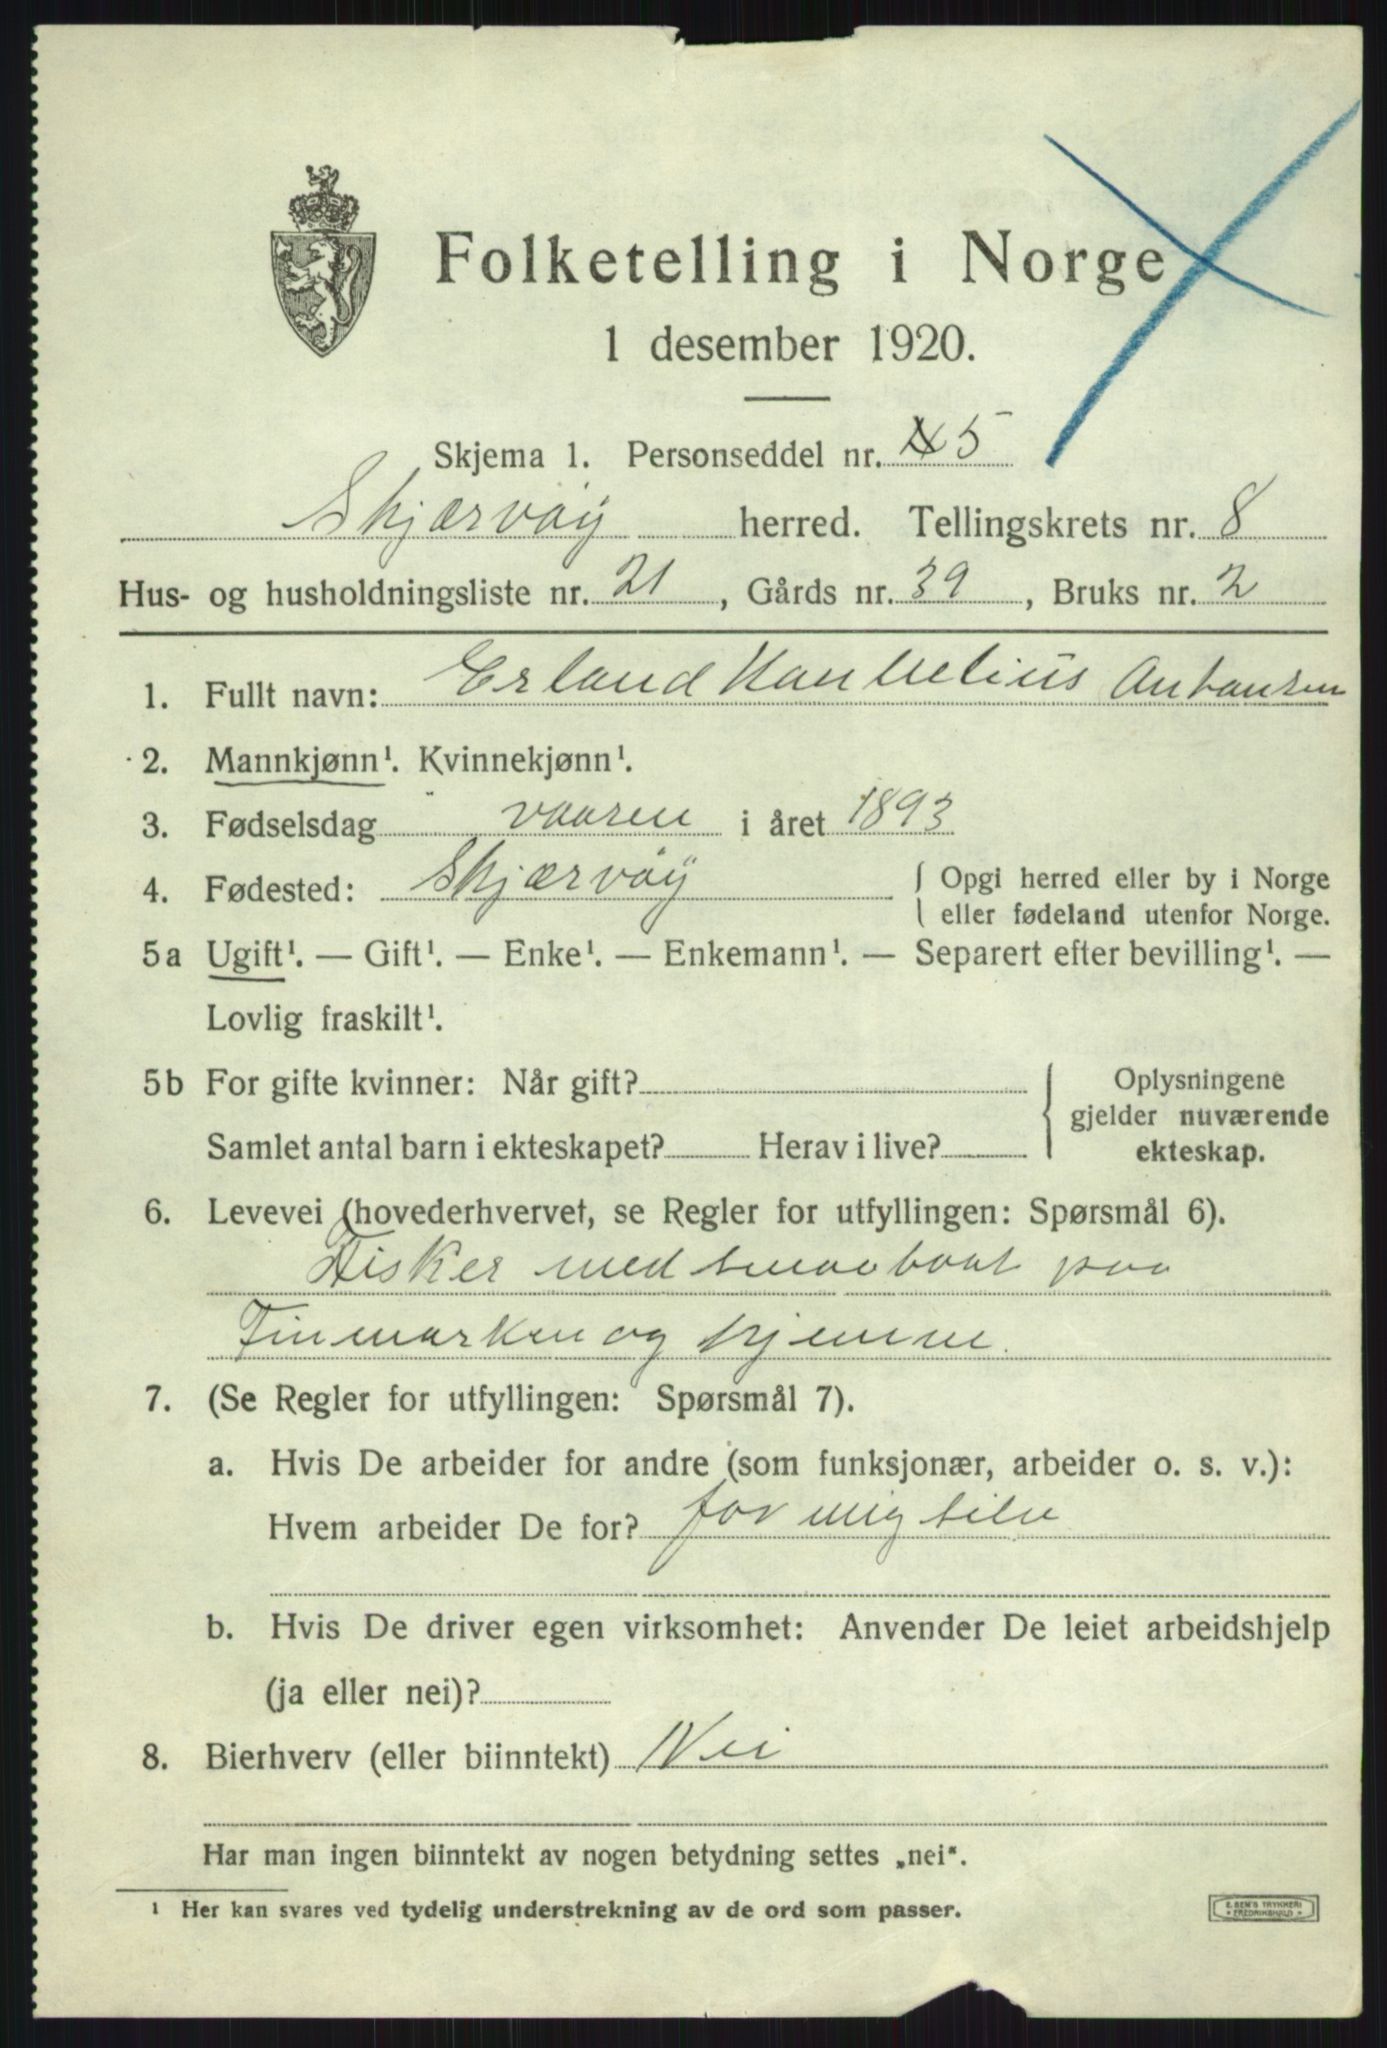 Folketelling i Norge
1 desember 1920.
Skjema 1. Personseddel nr. 5
Skjærvöy herred. Tellingskrets nr. 8
Hus- og husholdningsliste nr. 21, Gårds nr. 39, Bruks nr. 2
1. Fullt navn: Erland
2. Mannkjønn¹. Kvinnekjønn¹.
3. Fødselsdag vaaren i året 1893
4. Fødested: Skjærvöy { Opgi herred eller by i Norge
eller fødeland utenfor Norge.
5a Ugift¹. — Gift¹. — Enke¹. — Enkemann¹. — Separert efter bevilling¹. —
Lovlig fraskilt¹.
5b For gifte kvinner: Når gift? { Oplysningene
gjelder nuværende
Samlet antal barn i ekteskapet? Herav i live? ekteskap.
6. Levevei (hovederhvervet, se Regler for utfyllingen: Spørsmål 6).
Fisker med smaabaat paa
Finmarken og hjemme.
7. (Se Regler for utfyllingen: Spørsmål 7).
a. Hvis De arbeider for andre (som funksjonær, arbeider o. s. v.):
Hvem arbeider De for? for mig selv
b. Hvis De driver egen virksomhet: Anvender De leiet arbeidshjelp
(ja eller nei)?
8. Bierhverv (eller biinntekt) Nei
Har man ingen biinntekt av nogen betydning settes „nei".
¹ Her kan svares ved tydelig understrekning av de ord som passer.
E. SEM'S TRYKKERI
FREDRIKSHALD